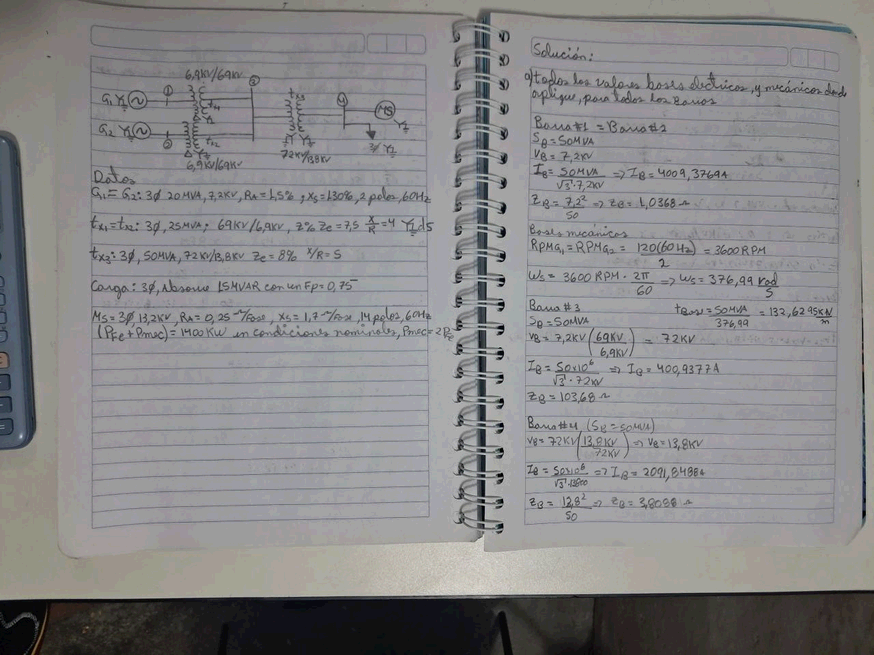 6,9KV/69KV
G1 Y
1
tx1
Δ
3
tx3
4
MS
G2 Y
2
tx2
Y Y
3Φ
6,9KV/69KV
72KV/13,8KV
Datos
G1 = G2: 3Φ 20MVA, 7,2KV, RA=1,5%, Xs=130%, 2 polos, 60Hz
tx1=tx2: 3Φ, 25MVA; 69KV/6,9KV, Z% Ze=7,5 X/R=4 Yd5
tx3: 3Φ, 50MVA, 72KV/13,8KV Ze=8% X/R=5
Carga: 3Φ, Absorve 15MVAR con un Fp=0,75
MS=3Φ, 13,2KV, RA=0,25Ω/Fase, Xs=1,7Ω/Fase, 14 polos, 60Hz
(PFe+Pmec)=1400KW en condiciones nominales, Pmec=2PFe
Solución:
a) todos los valores bases electricos, y mecánicos donde
aplique, para todos los Barras
Barra #1 = Barra #2
SB=50MVA
VB=7,2KV
IB=50MVA/√3·7,2KV => IB=4009,3769A
ZB=7,2²/50 => ZB=1,0368Ω
Bases mecánicos
RPMG1=RPMG2=120(60Hz)/2=3600RPM
Ws=3600RPM·2π/60 => Ws=376,99 rad/s
Barra #3
tBase=50MVA/376,99=132,6295KN/m
SB=50MVA
VB=7,2KV(69KV/6,9KV)=72KV
IB=50×10⁶/√3·72KV => IB=400,9377A
ZB=103,68Ω
Barra #4 (SB=50MVA)
VB=72KV(13,8KV/72KV) => VB=13,8KV
IB=50×10⁶/√3·13800 => IB=2091,8488A
ZB=13,8²/50 => ZB=3,8088Ω